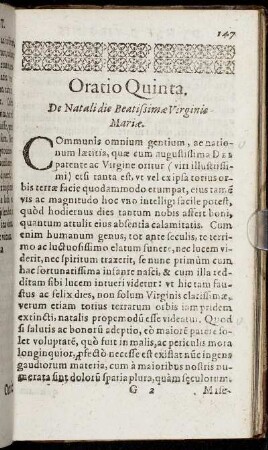 147
Oratio Quinta.
De Natali die Beatissimæ Virginis
Mariæ.
COmmunis omnium gentium, ac natio-
num lætitia, quæ cum augustissima Dei
parente ac Virgine oritur (viri illustrissi-
mi) etsi tanta est, vt vel ex ipsa totius or-
bis terræ facie quodammodo erumpat, eius tamē
vis ac magnitudo hoc vno intelligi facile potest,
quòd hodiernus dies tantum nobis affert boni,
quantum attulit eius absentia calamitatis. Cum
enim humanum genus, tot ante seculis, teterri-
mo ac luctuosissimo elatum funere, nec lucem vi-
derit, nec spiritum traxerit, se nunc primùm cum
hac fortunatissima infante nasci, & cum illa red-
ditam sibi lucem intueri videtur: vt hic tam fau-
stus ac felix dies, non solum Virginis clarissimæ,
verum etiam totius terrarum orbis iam pridem
extincti, natalis propemodū esse videatur. Quod
si salutis ac bonorū adeptio, eò maiorē parere so-
let voluptatē, quò fuit in malis, ac periculis mora
longinquior, pfectò necesse est existat nūc ingens
gaudiorum materia, cum à maioribus nostris nu-
merata sint dolorū spatia plura, quàm seculorum.
G 2 Mise-